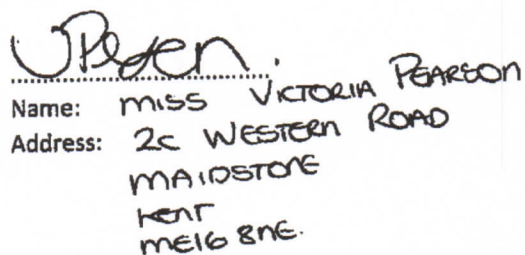 VPearson.
Name: MISS VICTORIA PEARSON
Address: 2c WESTERN ROAD
MAIDSTONE
KENT
ME16 8NE.